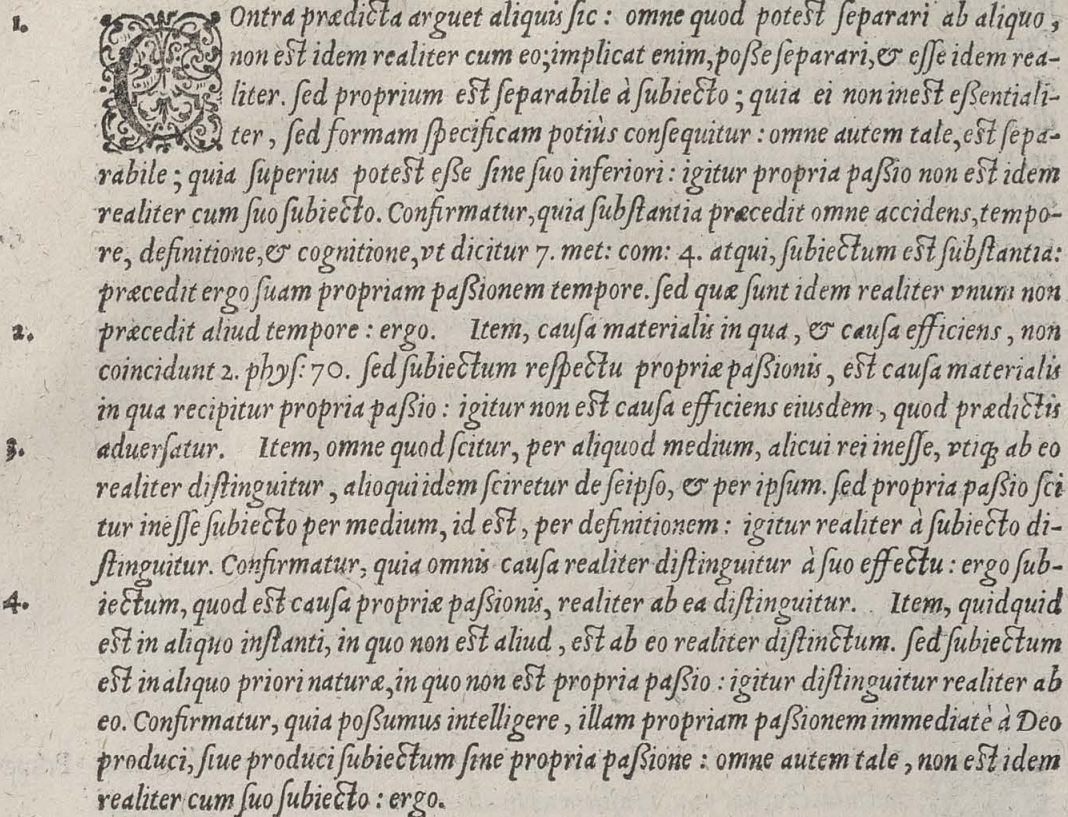 1. COntra prædicta arguet aliquis ſic : omne quod potest ſeparari ab aliquo ,
non est idem realiter cum eo;implicat enim,poſſe ſeparari,& eſſe idem rea-
liter. ſed proprium est ſeparabile à ſubiecto ; quia ei non inest eſſentiali-
ter , ſed formam ſpecificam potiùs conſequitur : omne autem tale,est ſepa-
rabile ; quia ſuperius potest eſſe ſine ſuo inferiori : igitur propria paſſio non est idem
realiter cum ſuo ſubiecto. Confirmatur,quia ſubſtantia præcedit omne accidens,tempo-
re, definitione,& cognitione,vt dicitur 7. met: com: 4. atqui, ſubiectum est ſubſtantia:
præcedit ergo ſuam propriam paſſionem tempore. ſed quæ ſunt idem realiter vnum non
2. præcedit aliud tempore : ergo. Item, cauſa materialis in qua , & cauſa efficiens , non
coincidunt 2. phyſ: 70. ſed ſubiectum reſpectu propriæ paſſionis , est cauſa materialis
in qua recipitur propria paſſio : igitur non est cauſa efficiens eiusdem , quod prædictis
3. aduerſatur. Item, omne quod ſcitur, per aliquod medium, alicui rei ineſſe, vtiq; ab eo
realiter diſtinguitur , alioqui idem ſciretur de ſeipſo, & per ipſum. ſed propria paſſio ſci
tur ineſſe ſubiecto per medium, id est , per definitionem : igitur realiter à ſubiecto di-
ſtinguitur. Confirmatur, quia omnis cauſa realiter diſtinguitur à ſuo effectu : ergo ſub-
4. iectum, quod est cauſa propriæ paſſionis, realiter ab ea diſtinguitur. Item, quidquid
est in aliquo inſtanti, in quo non est aliud , est ab eo realiter diſtinctum. ſed ſubiectum
est in aliquo priori naturæ,in quo non est propria paſſio : igitur diſtinguitur realiter ab
eo. Confirmatur, quia poſſumus intelligere , illam propriam paſſionem immediatè à Deo
produci, ſiue produci ſubiectum ſine propria paſſione : omne autem tale , non est idem
realiter cum ſuo ſubiecto : ergo.